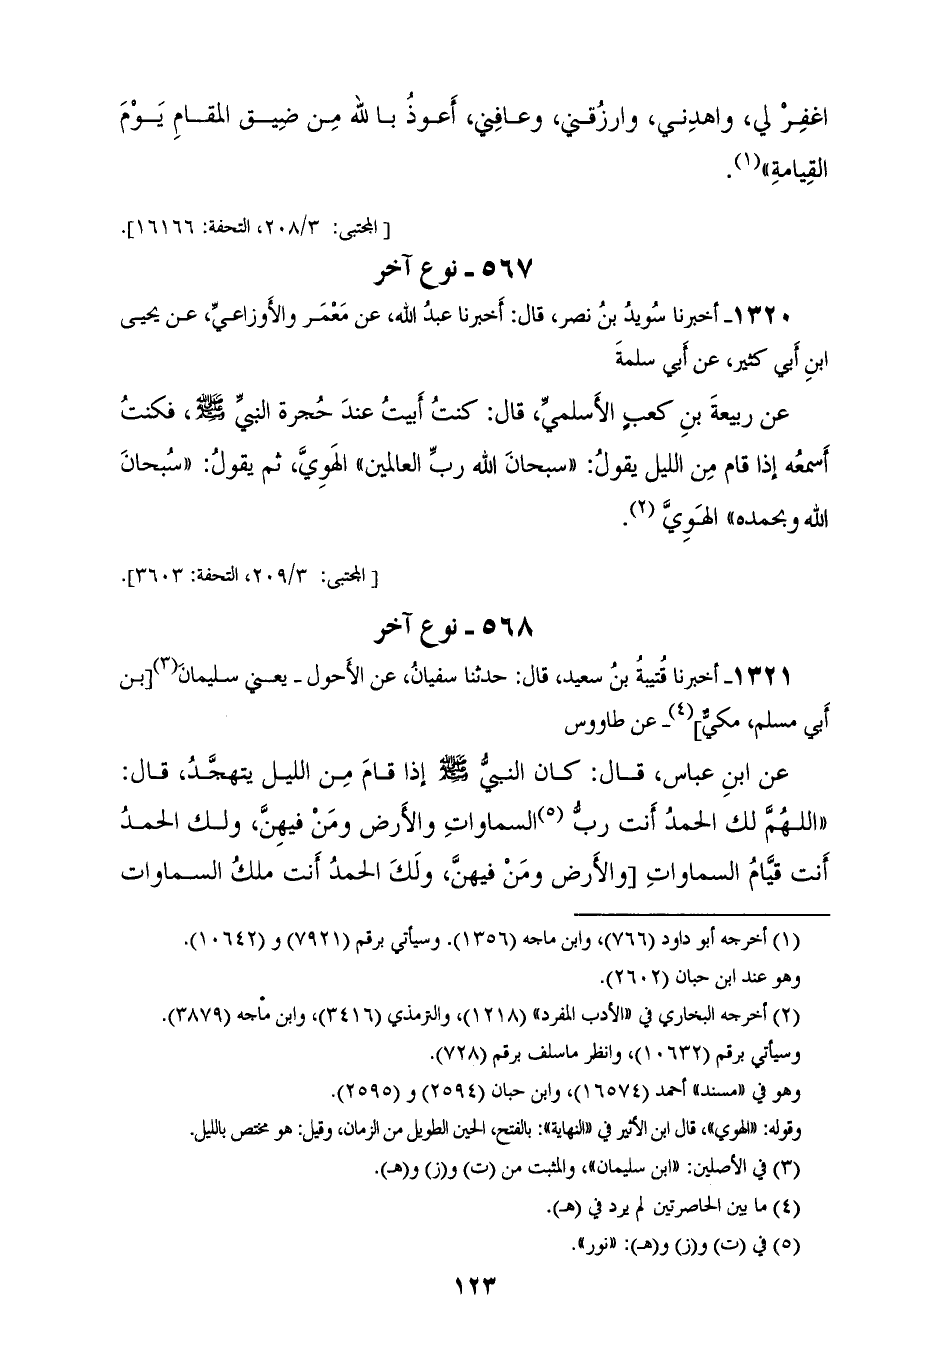 اغفِرْ لي، واهدِنـي، وارزُقـني، وعـافِني، أَعـوذُ بـا لله مِـن ضِيـق المقـامِ يَـوْمَ
القِيامةِ»(١).
[ المجتبى: ٢٠٨/٣، التحفة: ١٦١٦٦].
٥٦٧ ـ نوع آخر
١٣٢٠ـ أخبرنا سُويدُ بنُ نصر، قال: أَخبرنا عبدُ الله، عن مَعْمَـر والأَوزاعـيِّ، عـن يحيـى
ابنِ أَبي كثير، عن أَبي سلمةَ
عن ربيعةَ بنِ كعبٍ الأَسلميِّ، قال: كنتُ أَبيتُ عندَ حُجرة النبيِّ ﷺ، فكنتُ
أَسمعُه إذا قام مِن الليل يقولُ: «سبحانَ الله ربِّ العالمين» الهَوِيَّ، ثم يقولُ: «سُبحانَ
الله وبحمده» الهَوِيَّ (٢).
[ المجتبى: ٢٠٩/٣، التحفة: ٣٦٠٣].
٥٦٨ ـ نوع آخر
١٣٢١ـ أخبرنا قُتيبةُ بنُ سعيد، قال: حدثنا سفيانُ، عن الأَحول ـ يعـني سليمانَ(٣)[بـن
أَبي مسلم، مكيٌّ](٤)ـ عن طاووس
عن ابنِ عباس، قـال: كـان النبيُّ ﷺ إذا قـامَ مِـن الليـل يتهجَّـدُ، قـال:
«اللـهُمَّ لك الحمدُ أَنت ربُّ (٥)السماواتِ والأَرض ومَنْ فيهِنَّ، ولـك الحمـدُ
أَنت قيَّامُ السماواتِ [والأَرض ومَنْ فيهنَّ، ولَكَ الحمدُ أَنت ملكُ السـماوات
(١) أخرجه أبو داود (٧٦٦)، وابن ماجه (١٣٥٦). وسيأتي برقم (٧٩٢١) و (١٠٦٤٢).
وهو عند ابن حبان (٢٦٠٢).
(٢) أخرجه البخاري في «الأدب المفرد» (١٢١٨)، والترمذي (٣٤١٦)، وابن ماجه (٣٨٧٩).
وسيأتي برقم (١٠٦٣٢)، وانظر ماسلف برقم (٧٢٨).
وهو في «مسند» أحمد (١٦٥٧٤)، وابن حبان (٢٥٩٤) و (٢٥٩٥).
وقوله: «الهوي»، قال ابن الأثير في «النهاية»: بالفتح، الحين الطويل من الزمان، وقيل: هو مختص بالليل.
(٣) في الأصلين: «ابن سليمان»، والمثبت من (ت) و(ز) و(هـ).
(٤) ما بين الحاصرتين لم يرد في (هـ).
(٥) في (ت) و(ز) و(هـ): «نور».
١٢٣